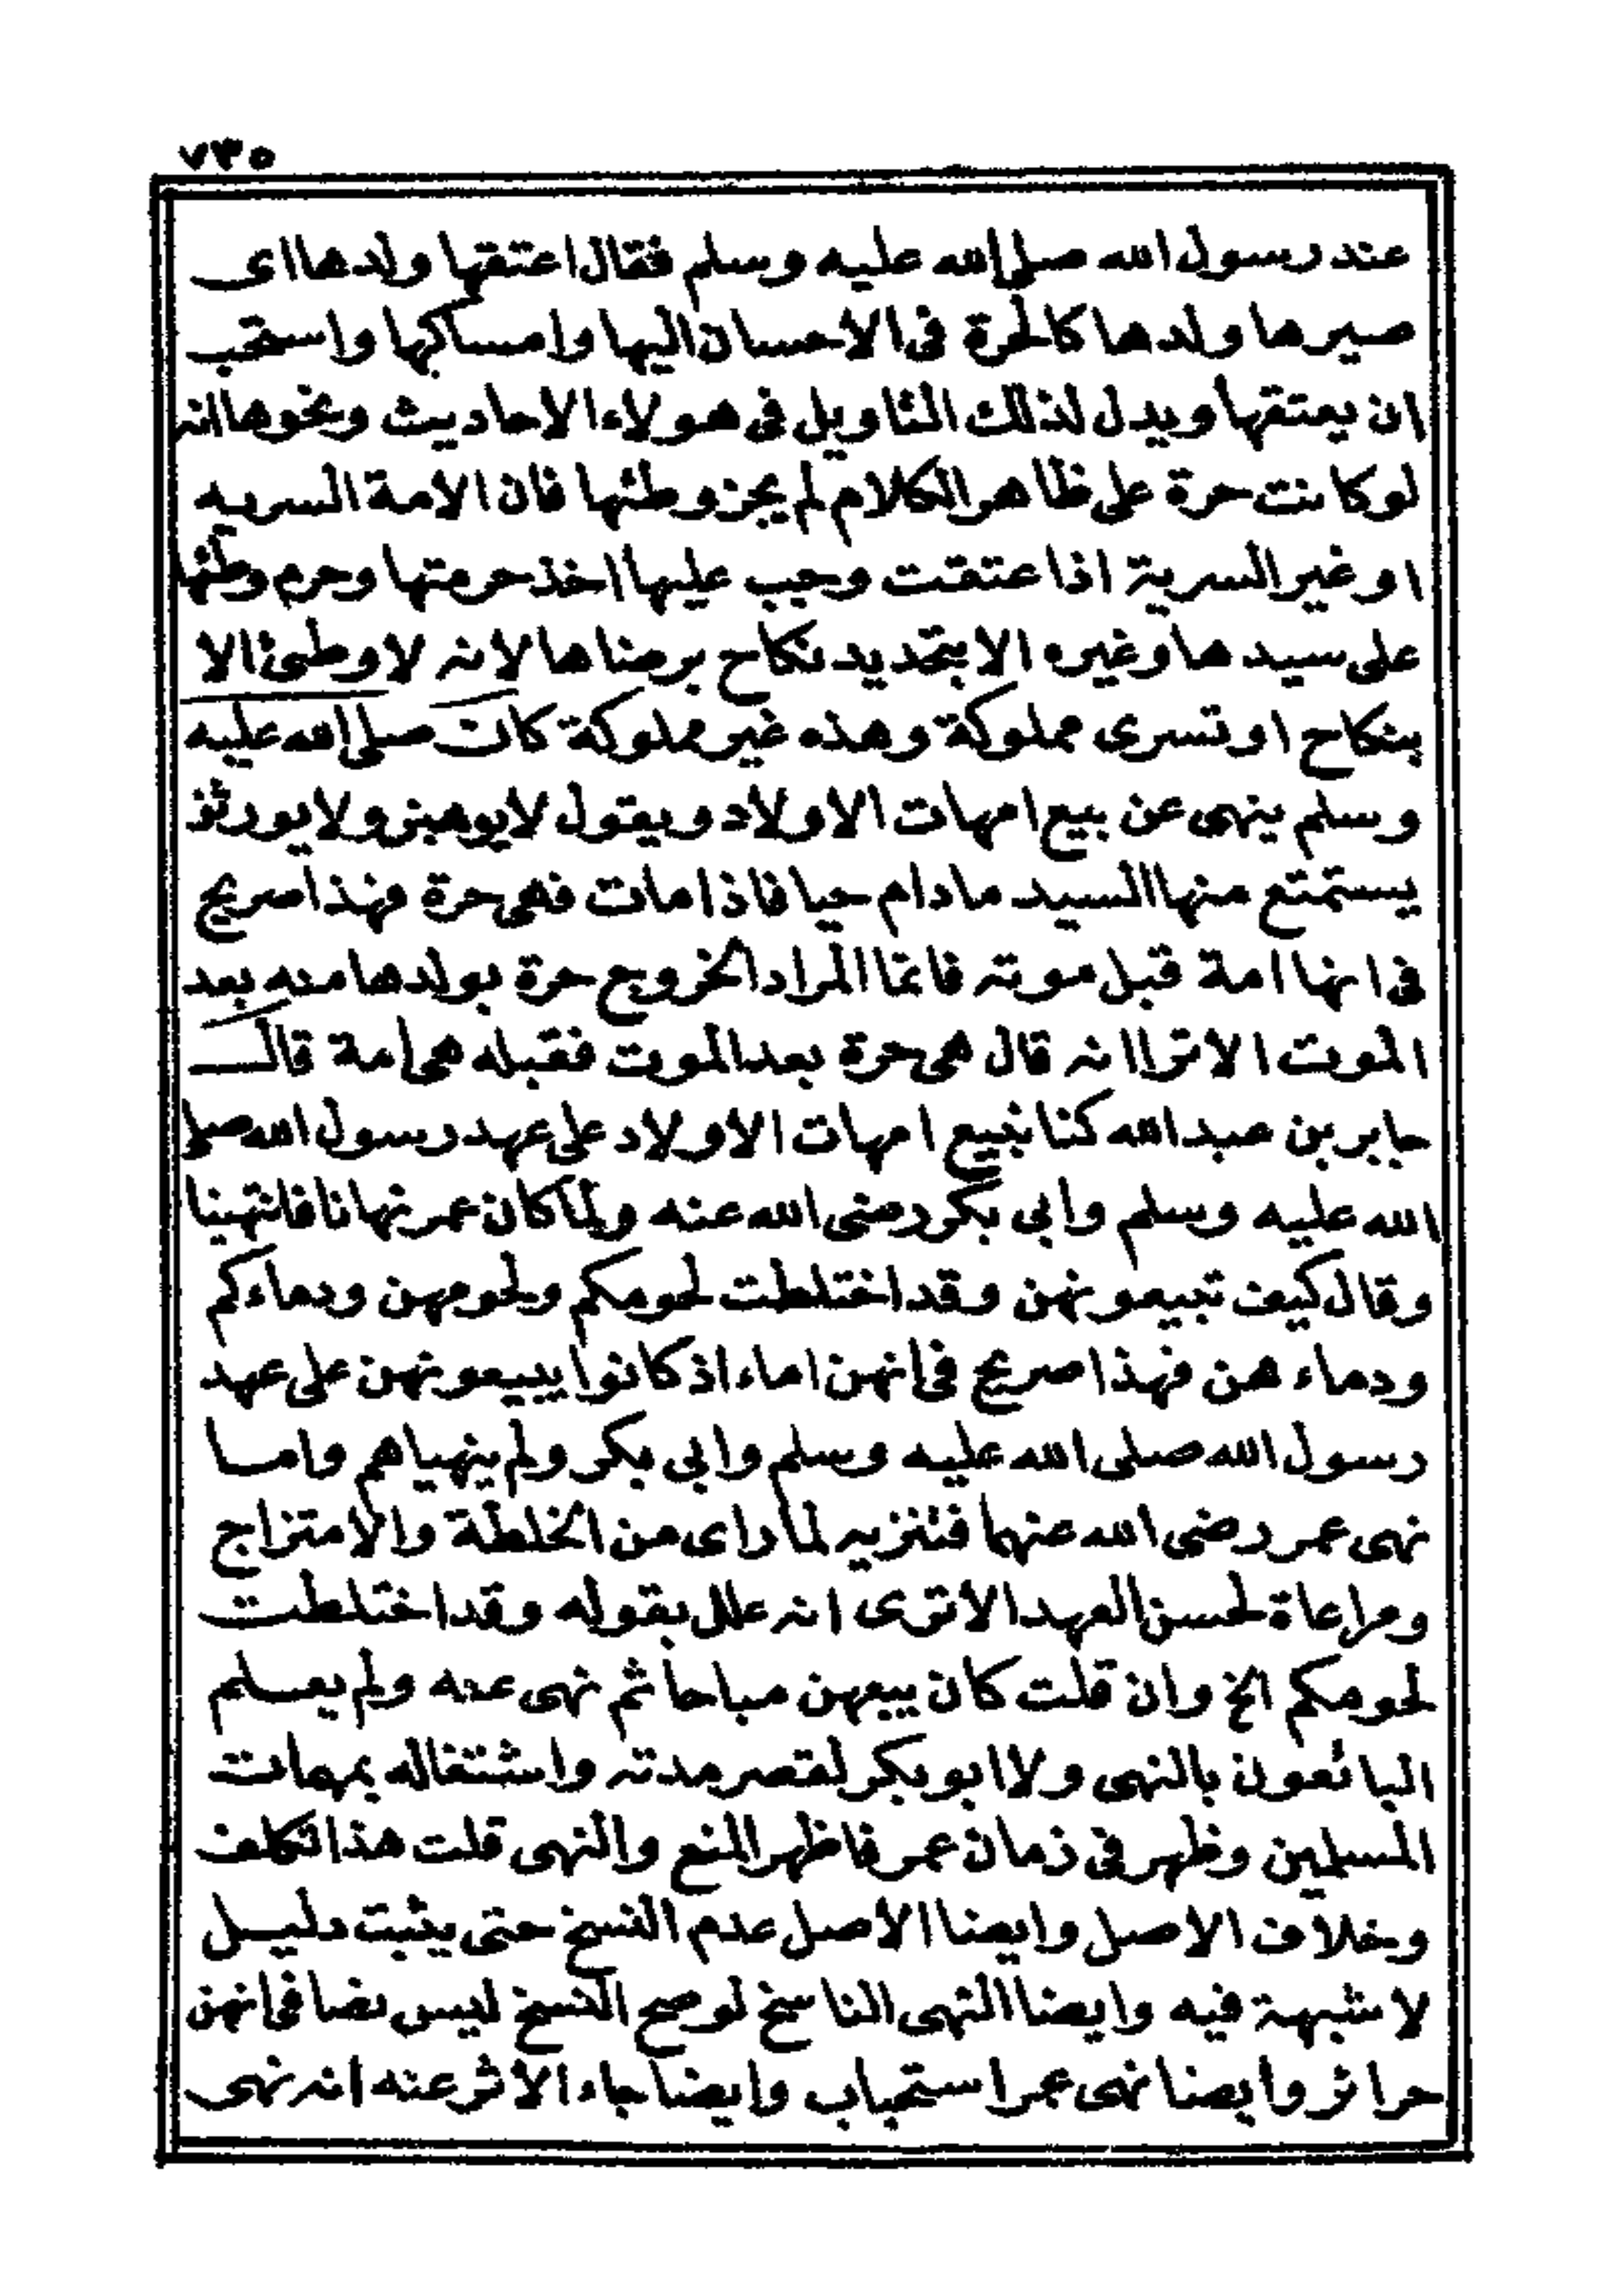 ٧٣٥
عند رسول الله صلى الله عليه وسلم فقال اعتقها ولدها اى
صيرها ولدها كالحرة فى الاحسان اليها وامساكها واستحب
ان يعتقها ويدل لذلك التاويل فى هولاء الاحاديث ونحوها انه
لو كانت حرة على ظاهر الكلام لم يجز وطئها فان الامة السريه
او غير السرية اذا عتقت وجب عليها اخذ حرمتها وحرم وطئها
على سيدها وغيره الا بتجديد نكاح برضاها لانه لا وطئ الا
بنكاح او تسرى مملوكة وهذه غير مملوكة كان صلى الله عليه
وسلم ينهى عن بيع امهات الاولاد ويقول لا يوهبن ولا يورثن
يستمتع منها السيد ما دام حيا فاذا مات فهى حرة فهذا صريح
فى انها امة قبل موته فانما المراد الخروج حرة بولدها منه بعد
الموت الا ترا انه قال هى حرة بعد الموت فقبله هى امة قال
جابر بن عبد الله كنا نبيع امهات الاولاد على عهد رسول الله صلى
الله عليه وسلم وابى بكر رضى الله عنه ولما كان عمر نهانا فانتهينا
وقال كيف تبيعونهن وقد اختلطت لحومكم ولحومهن ودماءكم
ودماء هن فهذا صريح فى انهن اماء اذ كانوا يبيعونهن على عهد
رسول الله صلى الله عليه وسلم وابى بكر ولم ينهياهم واما
نهى عمر رضى الله عنهما فتنزيه لما راى من الخلطة والامتزاج
ومراعاة لحسن العهد الا ترى انه علل بقوله وقد اختلطت
لحومكم الخ وان قلت كان بيعهن مباحا ثم نهى عنه ولم يعلم
البائعون بالنهى ولا ابو بكر لقصر مدته واشتغاله بمهمات
المسلمين وظهر فى زمان عمر فاظهر المنع والنهى قلت هذا تكلف
وخلاف الاصل وايضا الاصل عدم النسخ حتى يثبت دليل
لا شبهة فيه وايضا النهى الناسخ لو صح النسخ ليس نصا فى انهن
حرائر وايضا نهى عمر استحباب وايضا جاء الاثر عنه انه نهى